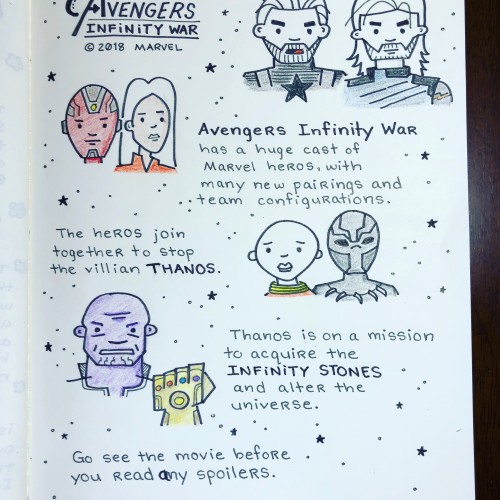 AVENGERS
INFINITY WAR
© 2018 MARVEL
Avengers Infinity War
has a huge cast of
Marvel heros, with
many new pairings and
team configurations.
The heros join
together to stop
the villian THANOS.
Thanos is on a mission
to acquire the
INFINITY STONES
and alter the
universe.
Go see the movie before
you read any spoilers.